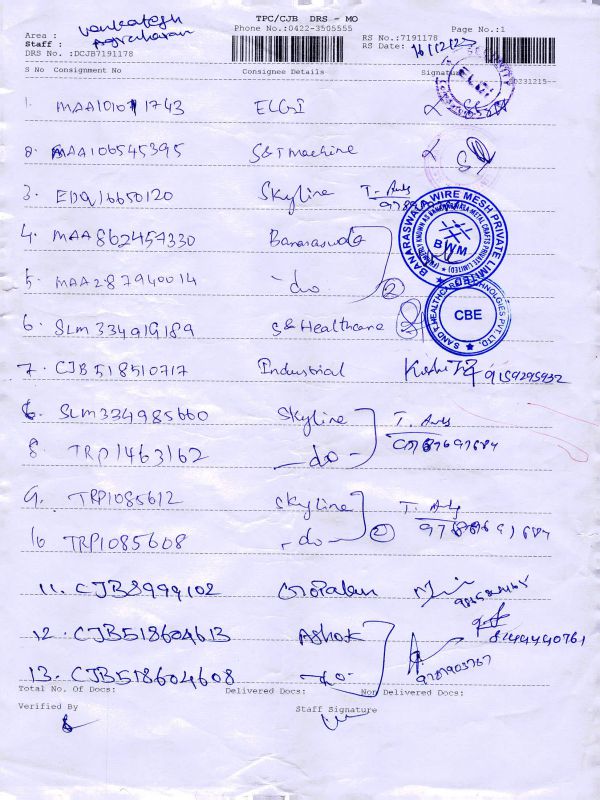 TPC/CJB DRS - MO
Venkatesh
Agraharam
Area :
Phone No.:0422-3505555
Page No.:1
Staff :
RS No.:7191178
DRS No. :DCJB7191178
RS Date: 16/12/23
S No Consignment No Consignee Details Signature
20231215
1. MAA101071743 ELGI
2. MAA106545395 S&T Machine
3. EDQ16650120 Skyline T.
4. MAA862457330 Banaraswala
5. MAA287940014 -do- 2
BANARASWALA WIRE MESH PRIVATE LIMITED
BWM
6. SLM334919189 S&Healthcare
S AND T HEALTHCARE TECHNOLOGIES PVT. LTD.
CBE
7. CJB518510717 Industrial 9159295932
6. SLM334985660 Skyline T.
8. TRP1463162 -do-
9. TRP1085612 Skyline T.
10 TRP1085608 -do- 2
11. CJB8999102 Gopalan
12. CJB518604613 Ashok 8144440761
13. CJB518604608 -do- 9787903767
Total No. Of Docs: Delivered Docs: Non Delivered Docs:
Verified By Staff Signature